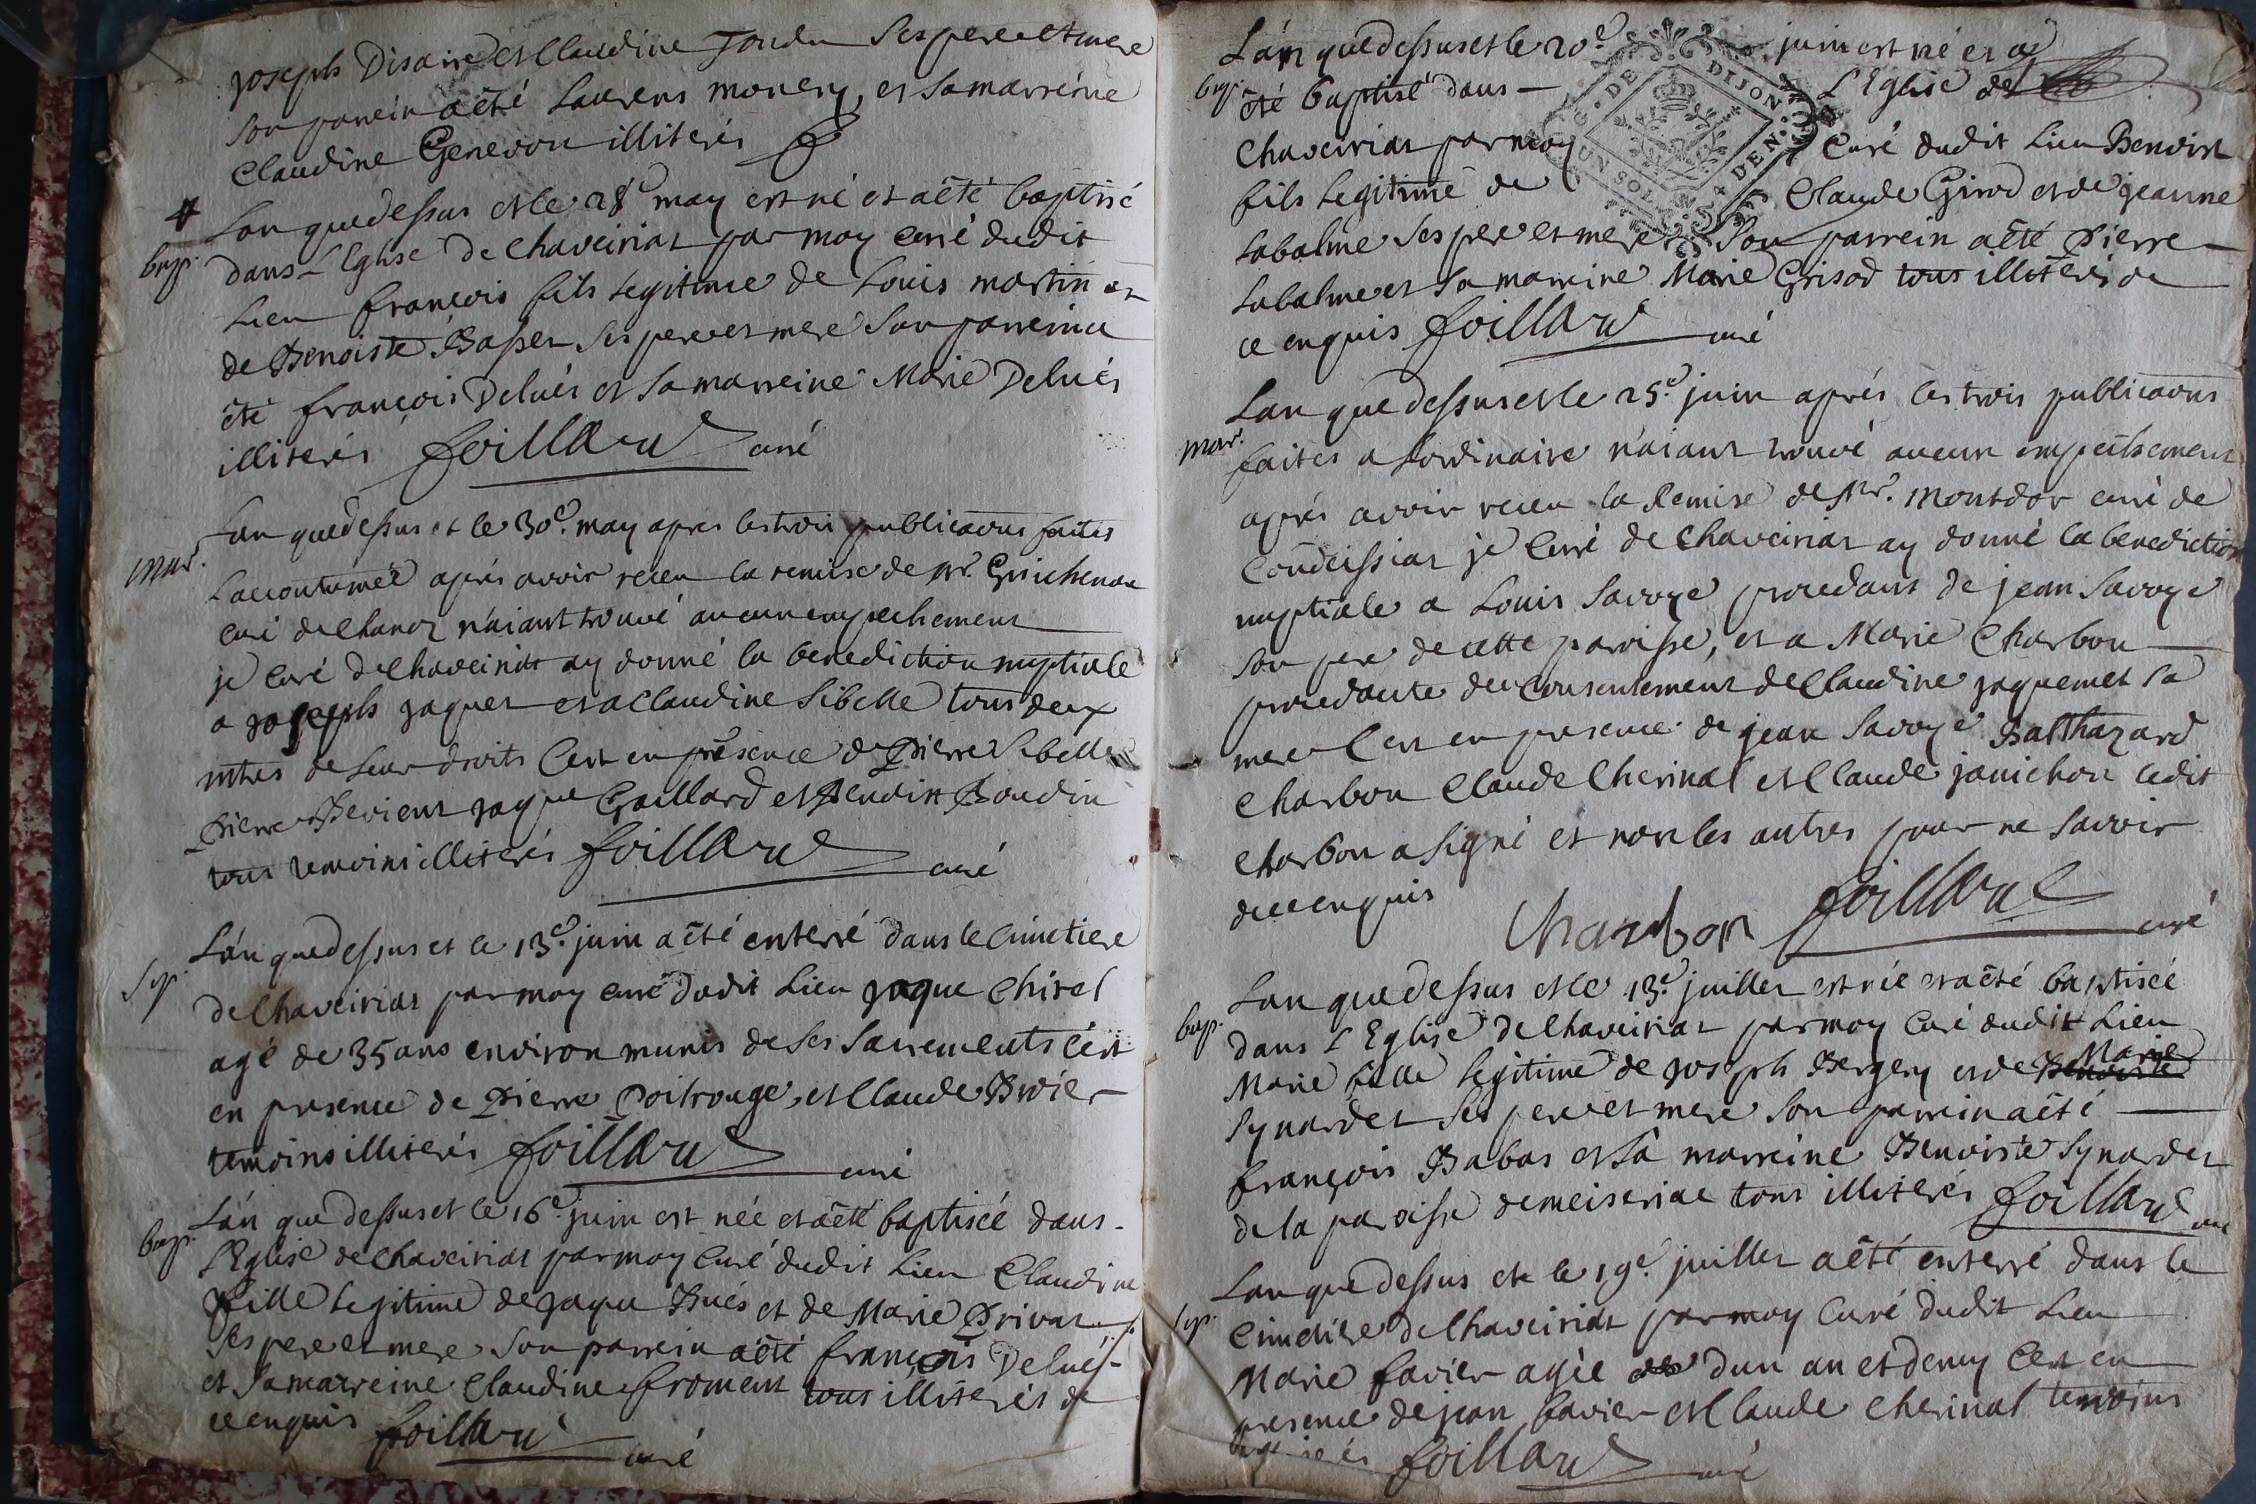 joseph Disaire et Claudine Jondu Ses pere et mere
Son parrein a êté Laurens monery et Sa marreine
Claudine Genevou illiterés
Lan que dessus et le 28e may est né et a êté baptisé
bap.
dans L'Eglise de Chaveiriat par moy curé dudit
Lieu françois fils legitime de Louis martin et
de Benoiste Basset Ses pere et mere Son parrein a
êté françois Delués et Sa marreine Marie Delués
illiterés foillard curé
Lan que dessus et le 30e. may apres les trois publicaons faites
mar.
Laccoutumée aprés avoir receu la remise de Mr. Guichenon
curé de Chanoz n'aiant trouvé aucun empechement
je Curé de Chaveiriat ay donné la benediction nuptiale
a joseph jaquet et a Claudine Sibelle tous deux
mtres de Leur droits C'est en présence de Pierre Sibelle
Pierre Bevient jaque Gaillard et Benoist Boudin
tous temoins illiterés foillard curé
L'an que dessus et le 13e. juin a êté enterré dans le Cimetiere
Sep.
de Chaveiriat par moy curé dudit Lieu jaque Chirel
agé de 35 ans environ munis de Ses Sacrements C'est
en presence de Pierre Poitrouge, et Claude Broier
temoins illiterés foillard curé
L'an que dessus et le 16e. juin est née et a êté baptiseé dans
bap.
L'Eglise de Chaveiriat par moy Curé dudit Lieu Claudine
fille Legitime de jaque Bués et de Marie Privat
Ses pere et mere Son parrein a êté françois Delués
et Sa marreine Claudine froment tous illiterés de
ce enquis foillard curé
L'an que dessus et le 20e. juin est né et a
bap.
êté baptisé dans L'Eglise de
Chaveiriat par moy Curé dudit Lieu Benoist
fils Legitime de Claude Girod et de jeanne
Labalme Ses pere et mere Son parrein a êté Pierre
Labalme et Sa marreine Marie Grisod tous illiterés de
ce enquis foillard curé
G. DE DIJON
UN SOL 4 DEN.
Lan que dessus et le 25e. juin aprés les trois publicaons
mar.
faites a Lordinaire n'aiant trouvé aucun empéchement
aprés avoir receu la Remise de Mr. Montdor curé de
Condeissiat je Curé de Chaveiriat ay donné la benediction
nuptiale a Louis Savoye procedant de jean Savoye
Son pere de cette paroisse, et a Marie Charbon
procedante du Consentement de Claudine jaquemet Sa
mere C'est en presence de jean Savoye Balthazard
Charbon Claude Cherinal et Claude janichon Ledit
Charbon a Signé et non les autres pour ne Savoir
de ce enquis
Charbon foillard curé
Lan que dessus et le 13e. juillet est née et a êté baptisée
bap.
dans L'Eglise de Chaveiriat par moy Curé dudit Lieu
Marie fille Legitime de joseph Bergery et de Benoiste Marie
Synardet Ses pere et mere Son parrein a êté
françois Babas et Sa marreine Benoiste Synardet
de la paroisse de meiseriac tous illiterés foillard curé
Lan que dessus et le 19e. juillet a êté enterré dans le
Sep.
Cimetiere de Chaveiriat par moy Curé dudit Lieu
Marie favier agée d'un an et demy C'est en
presence de jean favier et Claude Cherinal temoins
foillard curé